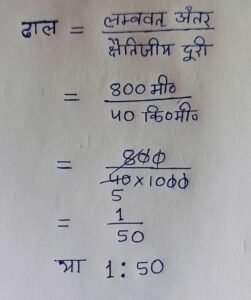 ढाल = लम्बवत अंतर / क्षैतिजीय दूरी
= 800 मी० / 40 कि०मी०
= 800 / 40 × 1000
5
= 1 / 50
या 1 : 50